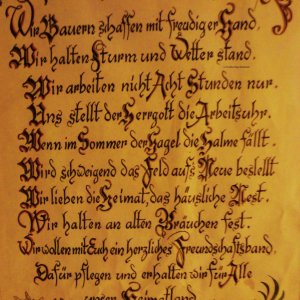 Wir Bauern schaffen mit freudiger Hand.
Wir halten Sturm und Wetter stand.
Wir arbeiten nicht Acht Stunden nur.
Uns stellt der Herrgott die Arbeitsuhr.
Wenn im Sommer der Hagel die Halme fällt.
Wird schweigend das Feld aufs Neue bestellt
Wir lieben die Heimat, das häusliche Nest.
Wir halten an alten Bräuchen fest.
Wir wollen mit Euch ein herzliches Freundschaftsband.
Dafür pflegen und erhalten wir für Alle
unser Heimatland